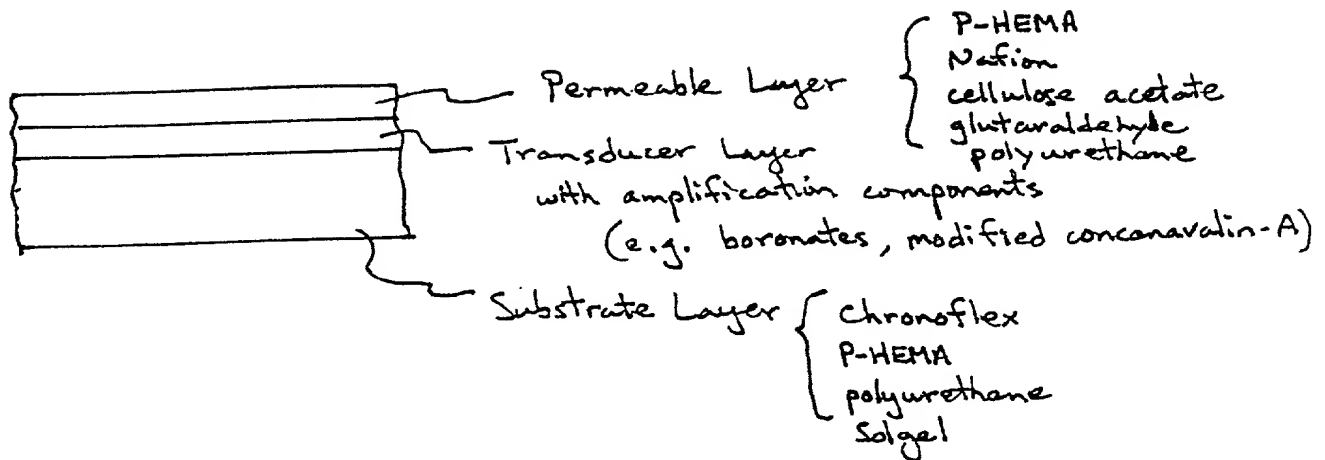 P-HEMA
Nafion
Permeable Layer
cellulose acetate
glutaraldehyde
polyurethane
Transducer Layer
with amplification components
(e.g. boronates, modified conconavalin-A)
Substrate Layer
Chronoflex
P-HEMA
polyurethane
Solgel